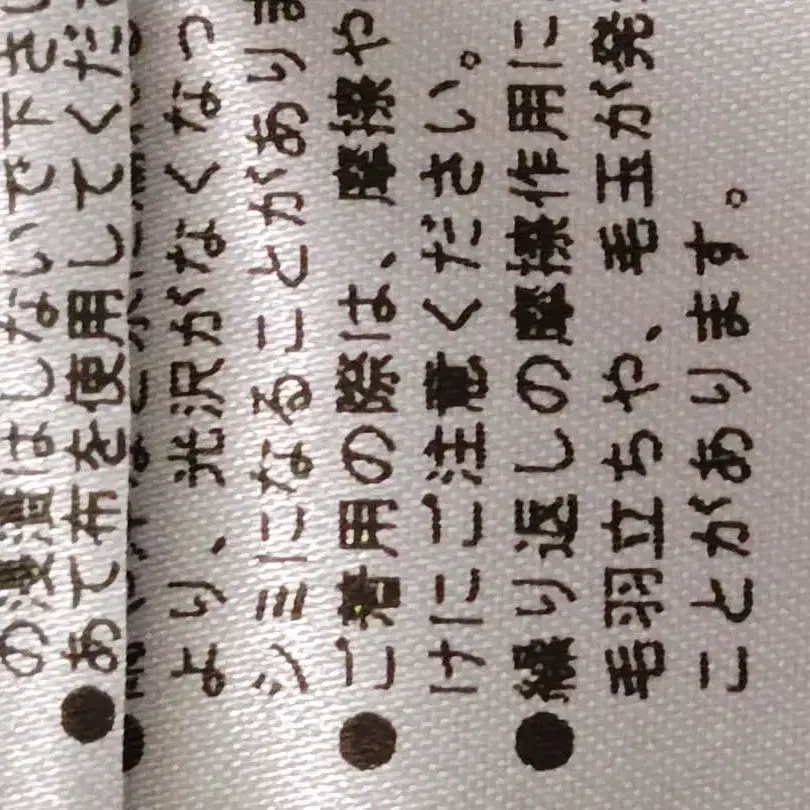 の浸漬はしないで下さい
あて布を使用してくださ
より、光沢がなくなっ
シミになることがありま
●ご着用の際は、摩擦や
けにご注意ください。
●繰り返しの摩擦作用に
毛羽立ちや、毛玉が発
ことがあります。